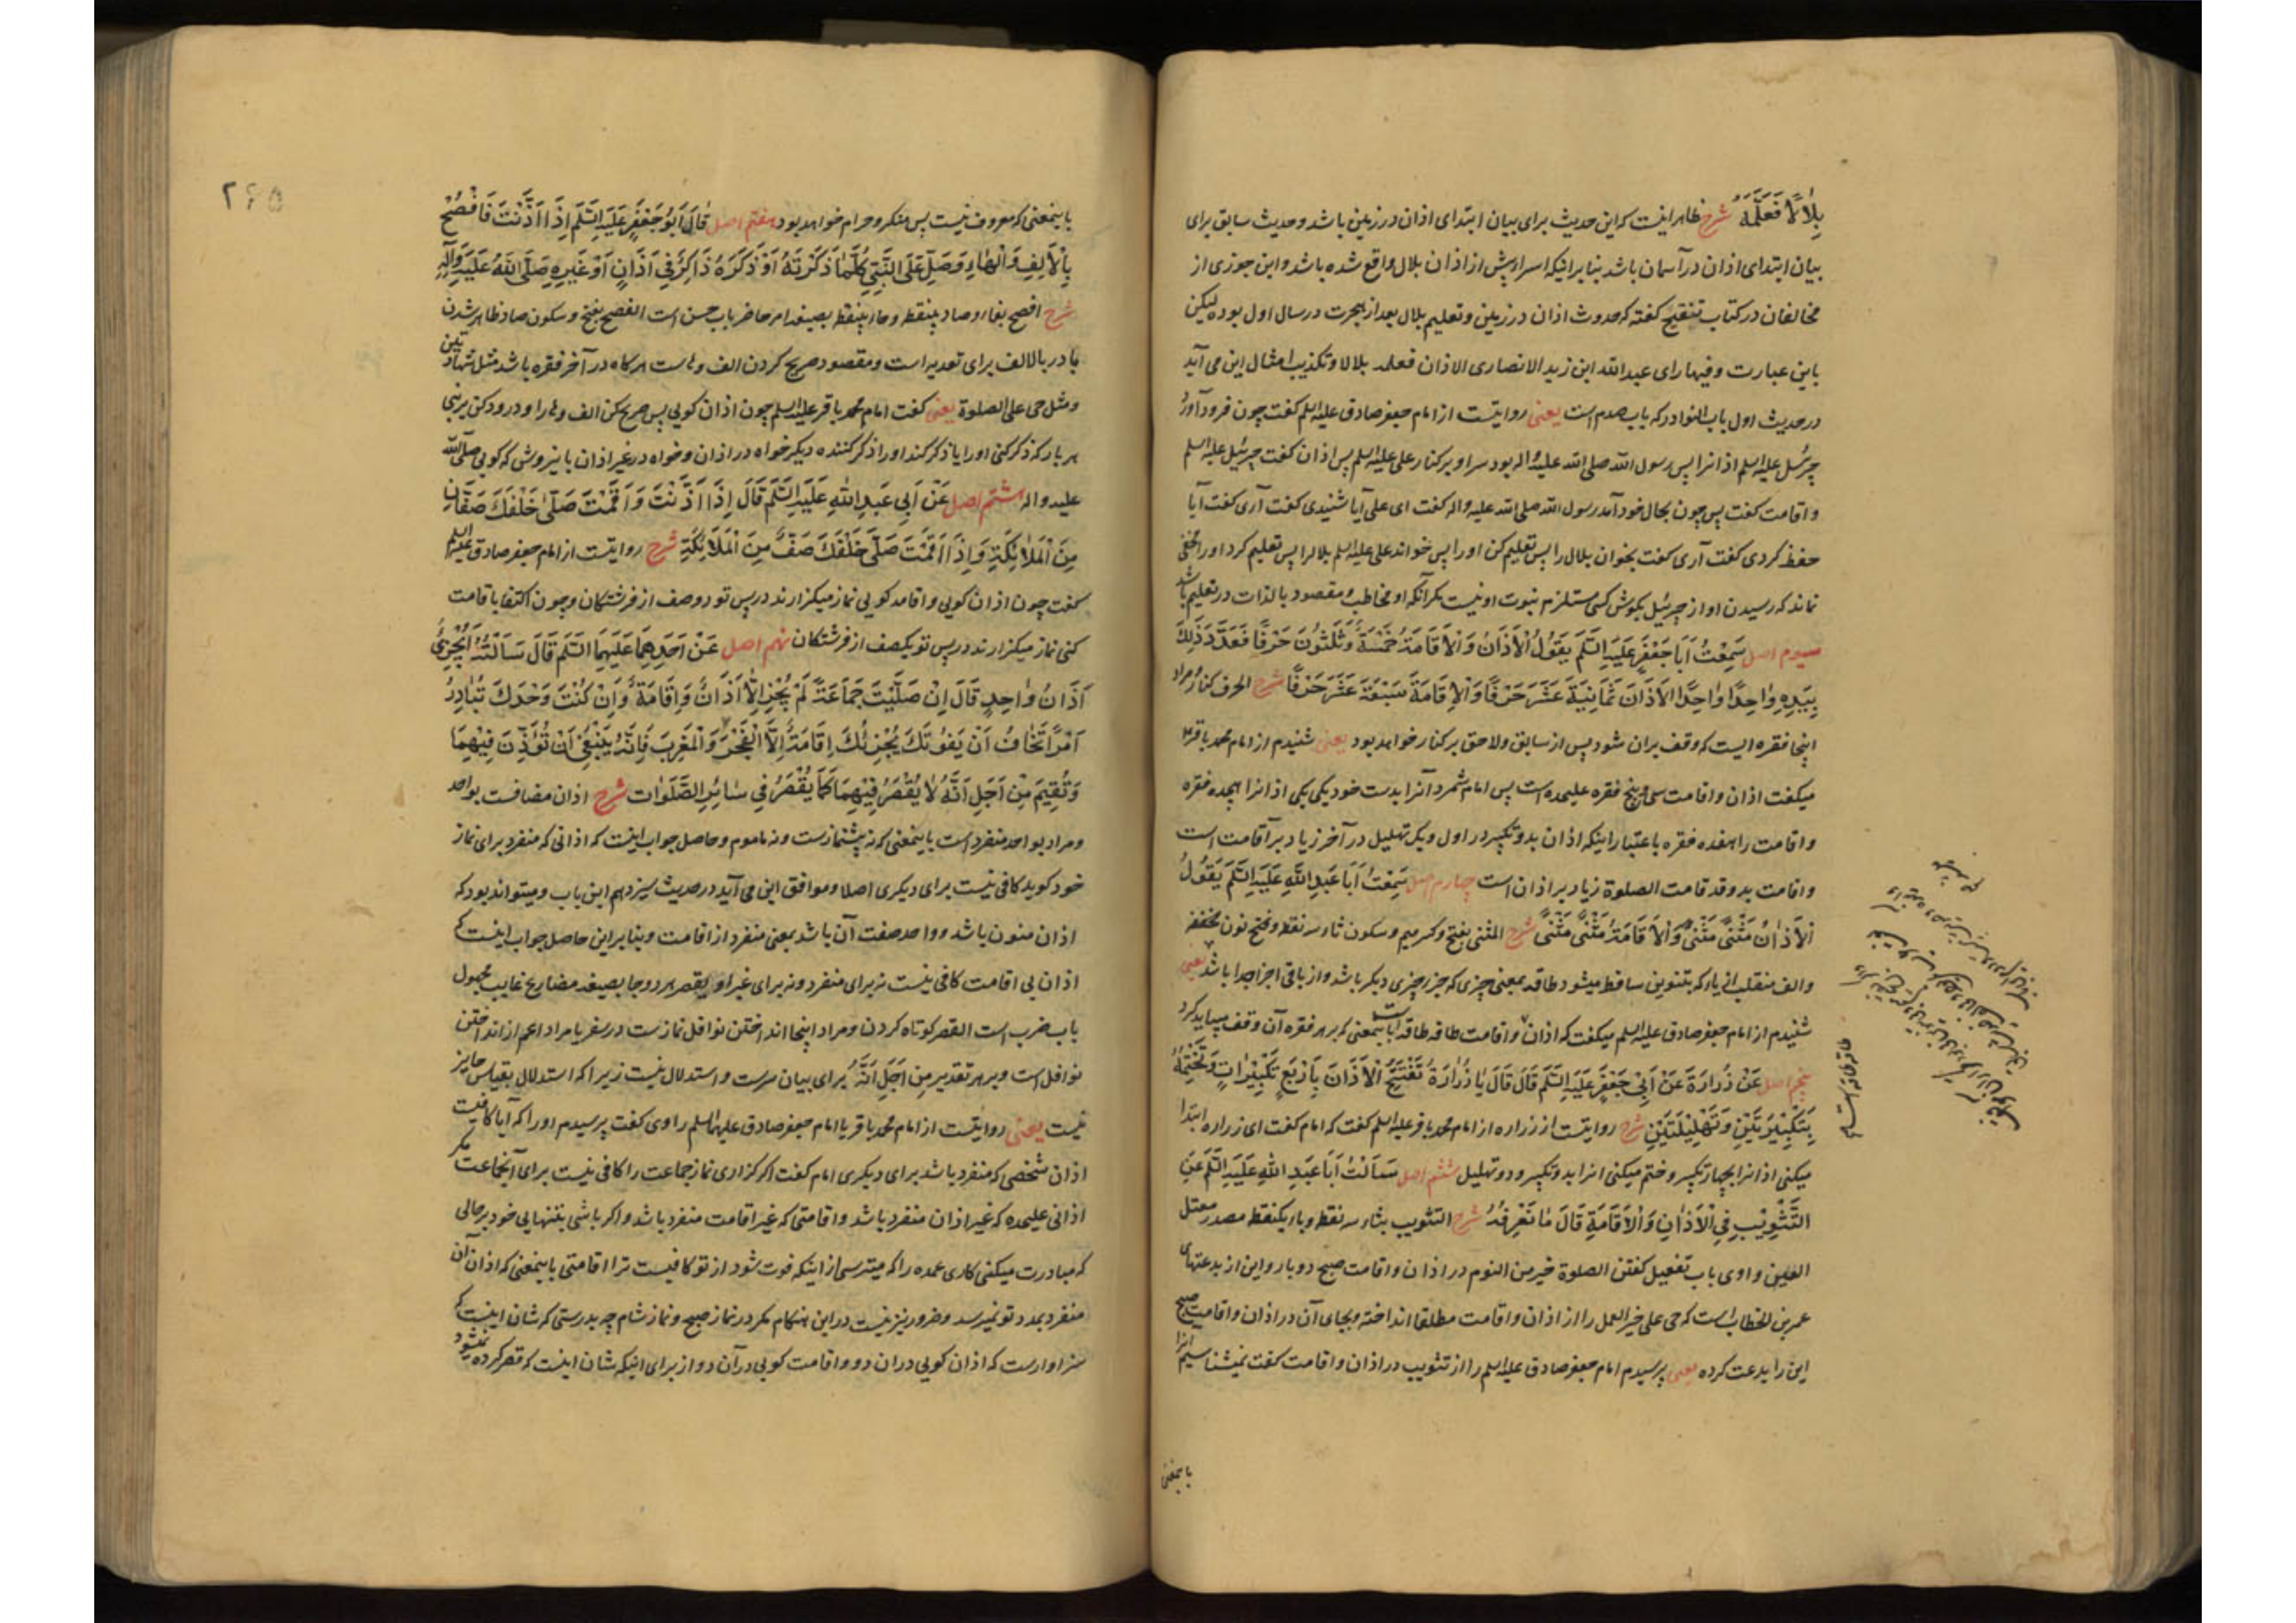 بِلَالًا فَعَلَّمَهُ شرح ظاهر اینست که این حدیث برای بیان ابتدای اذان در زمین باشد و حدیث سابق برای
بیان ابتدای اذان در آسمان باشد بنا بر اینکه اسرا پیش از اذان بلال واقع شده باشد و ابن جوزی از
مخالفان در کتاب تنقیح گفته که حدوث اذان در زمین و تعلیم بلال بعد از هجرت در سال اول بوده لیکن
باین عبارت و فیها رای عبدالله ابن زید الانصاری الاذان فعلمه بلالا و تکذیب امثال این می آید
در حدیث اول باب النوادر که باب صدم است یعنی روایتست از امام جعفر صادق علیه السلم گفت چون فرود آورد
جبرئیل علیه السلم اذانرا پس رسول الله صلی الله علیه و اله بود سر او بر کنار علی علیه السلم پس اذان گفت جبرئیل علیه السلم
و اقامت گفت پس چون بحال خود آمد رسول الله صلی الله علیه و اله گفت ای علی آیا شنیدی گفت آری گفت آیا
حفظ کردی گفت آری گفت بخوان بلال را پس تعلیم کن او را پس خواند علی علیه السلم بلال را پس تعلیم کرد او را مخفی
نماند که رسیدن اواز جبرئیل بگوش کسی مستلزم نبوت او نیست مگر آنکه او مخاطب و مقصود بالذات در تعلیم باشد
سیوم اصل سَمِعْتُ اَبَا جَعْفَرٍ عَلَیْهِ السَّلَم یَقُولُ الْاَذَانُ وَ الْاِقَامَةُ خَمْسَةٌ وَ ثَلٰثُونَ حَرْفًا فَعَدَّ ذَلِكَ
بِیَدِهِ وَاحِدًا وَاحِدًا الْاَذَانَ ثَمَانِیَةَ عَشَرَ حَرْفًا وَ الْاِقَامَةَ سَبْعَةَ عَشَرَ حَرْفًا شرح الحرف کنار و مراد
اینجا فقره ایست که وقف بران شود پس از سابق و لاحق بر کنار خواهد بود یعنی شنیدم از امام محمد باقر ع
میگفت اذان و اقامت سی و پنج فقره علیحده است پس امام شمرد آنرا بدست خود یکی یکی اذانرا هجده فقره
و اقامت را هفده فقره باعتبار اینکه اذان بدو تکبیر در اول و یک تهلیل در آخر زیاد بر آقامت است
و اقامت بدو قد قامت الصلوة زیاد بر اذان است چهارم اصل سَمِعْتُ اَبَا عَبْدِ اللّٰهِ عَلَیْهِ السَّلَم یَقُولُ
اَلْاَذَانُ مَثْنَى مَثْنَى وَ الْاِقَامَةُ مَثْنَى مَثْنَى شرح المثنی بفتح و کسر میم و سکون ثاء سه نقطه و فتح نون مخففه
و الف منقلب از یاء که بتنوین ساقط میشود طاقه بمعنی چیزی که جزء چیزی دیگر باشد و از باقی اجزا جدا باشد یعنی
شنیدم از امام جعفر صادق علیه السلم میگفت که اذان و اقامت طاقه طاقه است باینمعنی که بر هر فقره آن وقف میباید کرد
پنجم اصل عَنْ زُرَارَةَ عَنْ اَبِی جَعْفَرٍ عَلَیْهِ السَّلَم قَالَ قَالَ یَا زُرَارَةُ تَفْتَتِحُ الْاَذَانَ بِاَرْبَعِ تَکْبِیرَاتٍ وَ تَخْتِمُهُ
بِتَکْبِیرَتَیْنِ وَ تَهْلِیلَتَیْنِ شرح روایتست از زراره از امام محمد باقر علیه السلم گفت که امام گفت ای زراره ابتدا
میکنی اذانرا بچهار تکبیر و ختم میکنی انرا بدو تکبیر و دو تهلیل ششم اصل سَاَلْتُ اَبَا عَبْدِ اللّٰهِ عَلَیْهِ السَّلَم عَنِ
التَّثْوِیبِ فِی الْاَذَانِ وَ الْاِقَامَةِ قَالَ مَا نَعْرِفُهُ شرح التثویب بثاء سه نقطه و باء یکنقطه مصدر معتل
العین واوی باب تفعیل گفتن الصلوة خیر من النوم در اذان و اقامت صبح دو بار و این از بدعتهای
عمر بن الخطاب است که حی علی خیر العمل را از اذان و اقامت مطلقا انداخته و بجای آن در اذان و اقامت صبح
این را بدعت کرده یعنی پرسیدم امام جعفر صادق علیه السلم را از تثویب در اذان و اقامت گفت نمیشناسیم انرا
باینمعنی
طاقه طاقه است
۲۶۵
باینمعنی که معروف نیست پس منکر و حرام خواهد بود هفتم اصل قَالَ اَبُو جَعْفَرٍ عَلَیْهِ السَّلَم اِذَا اَذَّنْتَ فَافْصِحْ
بِالْاَلِفِ وَ الْهَاءِ وَ صَلِّ عَلَى النَّبِیِّ کُلَّمَا ذَکَرْتَهُ اَوْ ذَکَرَهُ ذَاکِرٌ فِی اَذَانٍ اَوْ غَیْرِهِ صَلَّى اللّٰهُ عَلَیْهِ وَ آلِهِ
شرح افصح بفاء و صاد بینقطه و حاء بینقطه بصیغه امر حاضر باب حسن است الفصح بفتح و سکون صاد ظاهر شدن
با در بالالف برای تعدیه است و مقصود صریح کردن الف و هاست هر گاه در آخر فقره باشد مثل شهادتین
و مثل حی علی الصلوة یعنی گفت امام محمد باقر علیه السلم چون اذان گویی پس صریح کن الف و ها را و درود کن بر نبی
هر بار که ذکر کنی او را یا ذکر کند او را ذکر کننده دیگر خواه در اذان و خواه در غیر اذان باینروش که گویی صلی الله
علیه و اله هشتم اصل عَنْ اَبِی عَبْدِ اللّٰهِ عَلَیْهِ السَّلَم قَالَ اِذَا اَذَّنْتَ وَ اَقَمْتَ صَلَّى خَلْفَكَ صَفَّانِ
مِنَ الْمَلَائِکَةِ وَ اِذَا اَقَمْتَ صَلَّى خَلْفَكَ صَفٌّ مِنَ الْمَلَائِکَةِ شرح روایتست از امام جعفر صادق علیه السلم
گفت چون اذان گویی و اقامه گویی نماز میگزارند در پس تو دو صف از فرشتگان و چون اکتفا باقامت
کنی نماز میگزارند در پس تو یکصف از فرشتگان نهم اصل عَنْ اَحَدِهِمَا عَلَیْهِمَا السَّلَم قَالَ سَاَلْتُهُ اَیُجْزِئُ
اَذَانُ وَاحِدٍ قَالَ اِنْ صَلَّیْتَ جَمَاعَةً لَمْ یُجْزِ اِلَّا اَذَانٌ وَ اِقَامَةٌ وَ اِنْ کُنْتَ وَحْدَكَ تُبَادِرُ
اَمْرًا تَخَافُ اَنْ یَفُوتَكَ یُجْزِئُكَ اِقَامَةٌ اِلَّا الْفَجْرَ وَ الْمَغْرِبَ فَاِنَّهُ یَنْبَغِی اَنْ تُؤَذِّنَ فِیهِمَا
وَ تُقِیمَ مِنْ اَجَلِ اَنَّهُ لَا یُقْصَرُ فِیهِمَا کَمَا یُقْصَرُ فِی سَائِرِ الصَّلَوَات شرح اذان مضافست بواحد
و مراد بواحد منفرد است باینمعنی که نه پیشنمازست و نه ماموم و حاصل جواب اینست که اذانی که منفرد برای نماز
خود گوید کافی نیست برای دیگری اصلا و موافق این می آید در حدیث سیزدهم این باب و میتواند بود که
اذان منون باشد و واحد صفت آن باشد بمعنی منفرد از اقامت و بنا بر این حاصل جواب اینست که
اذان بی اقامت کافی نیست نه برای منفرد و نه برای غیر او یقصر هر دو جا بصیغه مضارع غایب مجهول
باب ضرب است القصر کوتاه کردن و مراد اینجا انداختن نوافل نمازست در سفر یا مراد اعم از انداختن
نوافل است و بر هر تقدیر مِنْ اَجَلِ اَنَّهُ برای بیان سرست و استدلال نیست زیرا که استدلال بقیاس جایز
نیست یعنی روایتست از امام محمد باقر یا امام جعفر صادق علیهما السلم راوی گفت پرسیدم او را که آیا کافیست
اذان شخصی که منفرد باشد برای دیگری امام گفت اگر گزاری نماز جماعت را کافی نیست برای آنجماعت مگر
اذانی علیحده که غیر اذان منفرد باشد و اقامتی که غیر اقامت منفرد باشد و اگر باشی بتنهایی خود بر حالی
که مبادرت میکنی کاری عمده را که میترسی از اینکه فوت شود از تو کافیست ترا اقامتی باینمعنی که اذان آن
منفرد بمدد تو نمیرسد و ضرور نیز نیست در این هنگام مگر در نماز صبح و نماز شام چه بدرستی که شان اینست که
سزاوارست که اذان گویی دران دو و اقامت گویی در آن دو از برای اینکه شان اینست که قصر کرده نمیشود